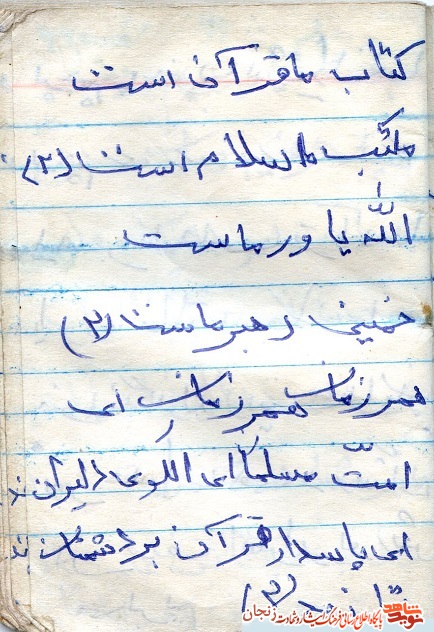 کتاب ما قرآن است
مکتب ما اسلام است (۲)
الله یاور ماست
خمینی رهبر ماست (۲)
همرزمان همرزمان ای
امت مسلمان ای الگوی ایران
ای پاسدار قرآن بر دشمنان
(۲)
نوید شاهد
پایگاه اطلاع رسانی فرهنگ ایثار و شهادت زنجان